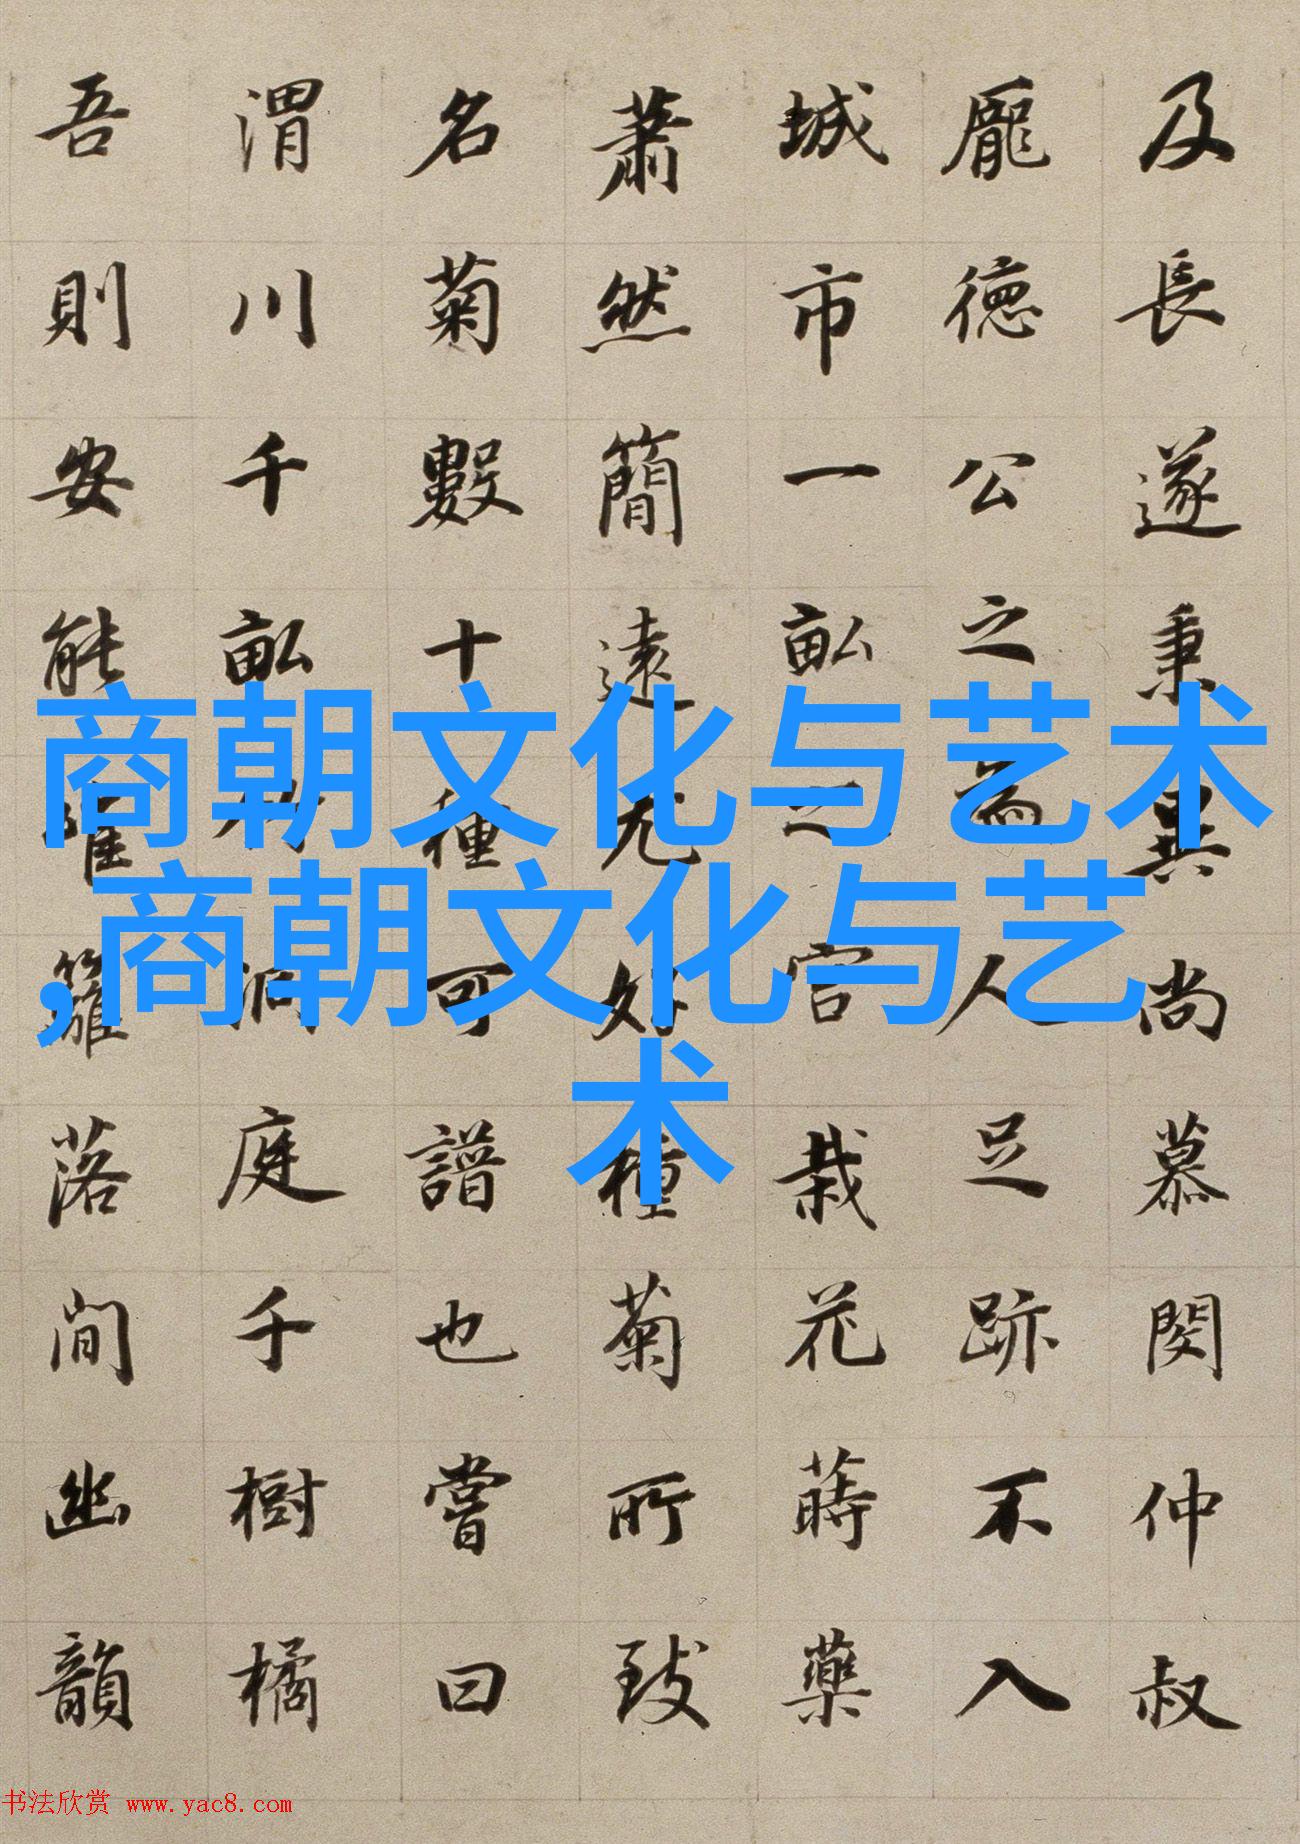 及長遂秉異尚慕閔仲叔
龐徳公之為人足跡不入
城市一畝之宮栽花蒔藥
蕭然簡遠尤好種菊所致
名菊數十種可譜也嘗曰
渭川千畝竹洞庭千樹橘
吾則安能籬落間幽韻
商朝文化与艺术
,商朝文化与艺
术
书法欣赏 www.yac8.com